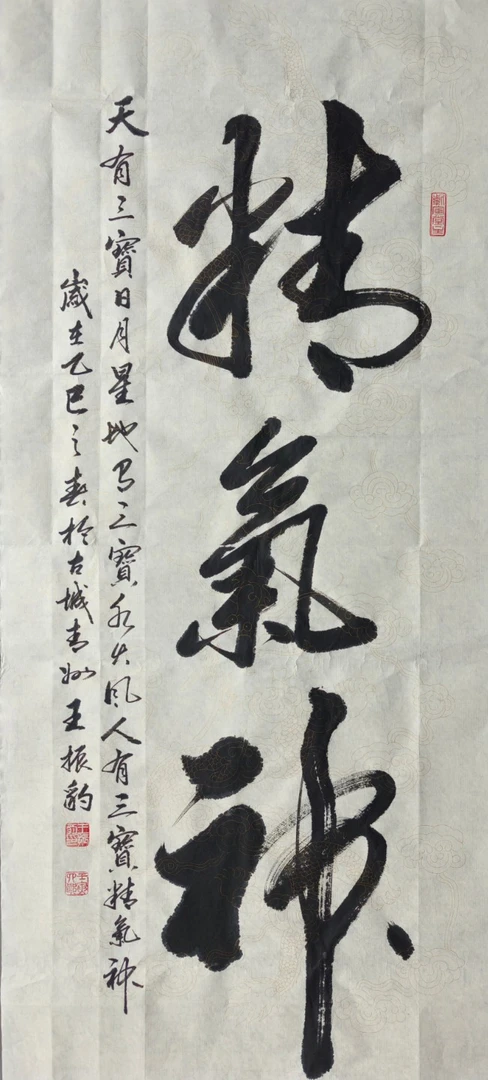 精氣神
天有三寶日月星地有三寶水火風人有三寶精氣神
歲在乙巳之春於古城青州王振豹